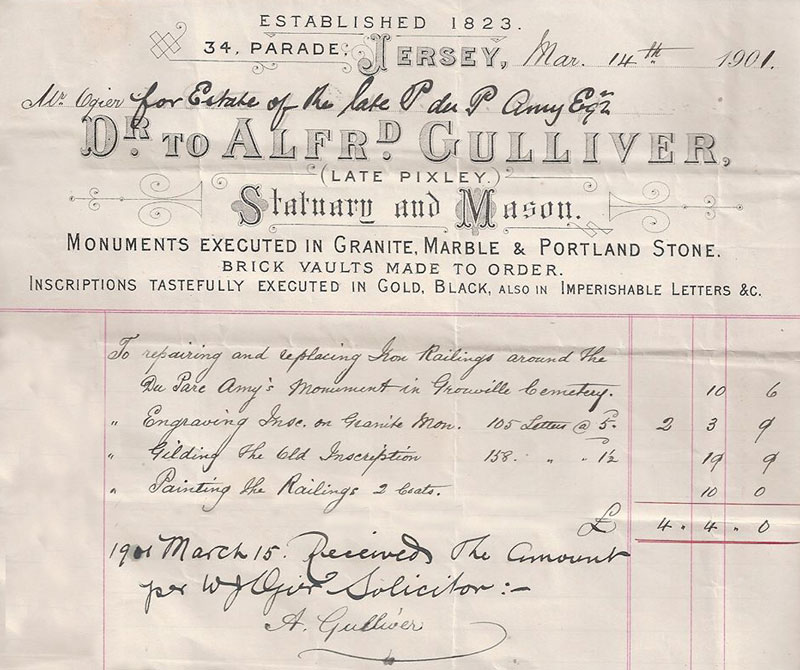 ESTABLISHED 1823.
34, PARADE, JERSEY, Mar. 14th 1901.
Mr. Ogier for Estate of the late P du P Amy Esqre
DR. TO ALFRD. GULLIVER,
(LATE PIXLEY.)
Statuary and Mason.
MONUMENTS EXECUTED IN GRANITE, MARBLE & PORTLAND STONE.
BRICK VAULTS MADE TO ORDER.
INSCRIPTIONS TASTEFULLY EXECUTED IN GOLD, BLACK, ALSO IN IMPERISHABLE LETTERS &C.
To repairing and replacing Iron Railings around the
Du Parc Amy's Monument in Grouville Cemetery. 10 6
" Engraving Insc. on Granite Mon. 105 Letters @ 5. 2 3 9
" Gilding the Old Inscription 158. " " 1½ 19 9
" Painting the Railings 2 Coats. 10 0
£ 4. 4. 0
1901 March 15. Received the amount
per W J Ogier Solicitor :-
A. Gulliver